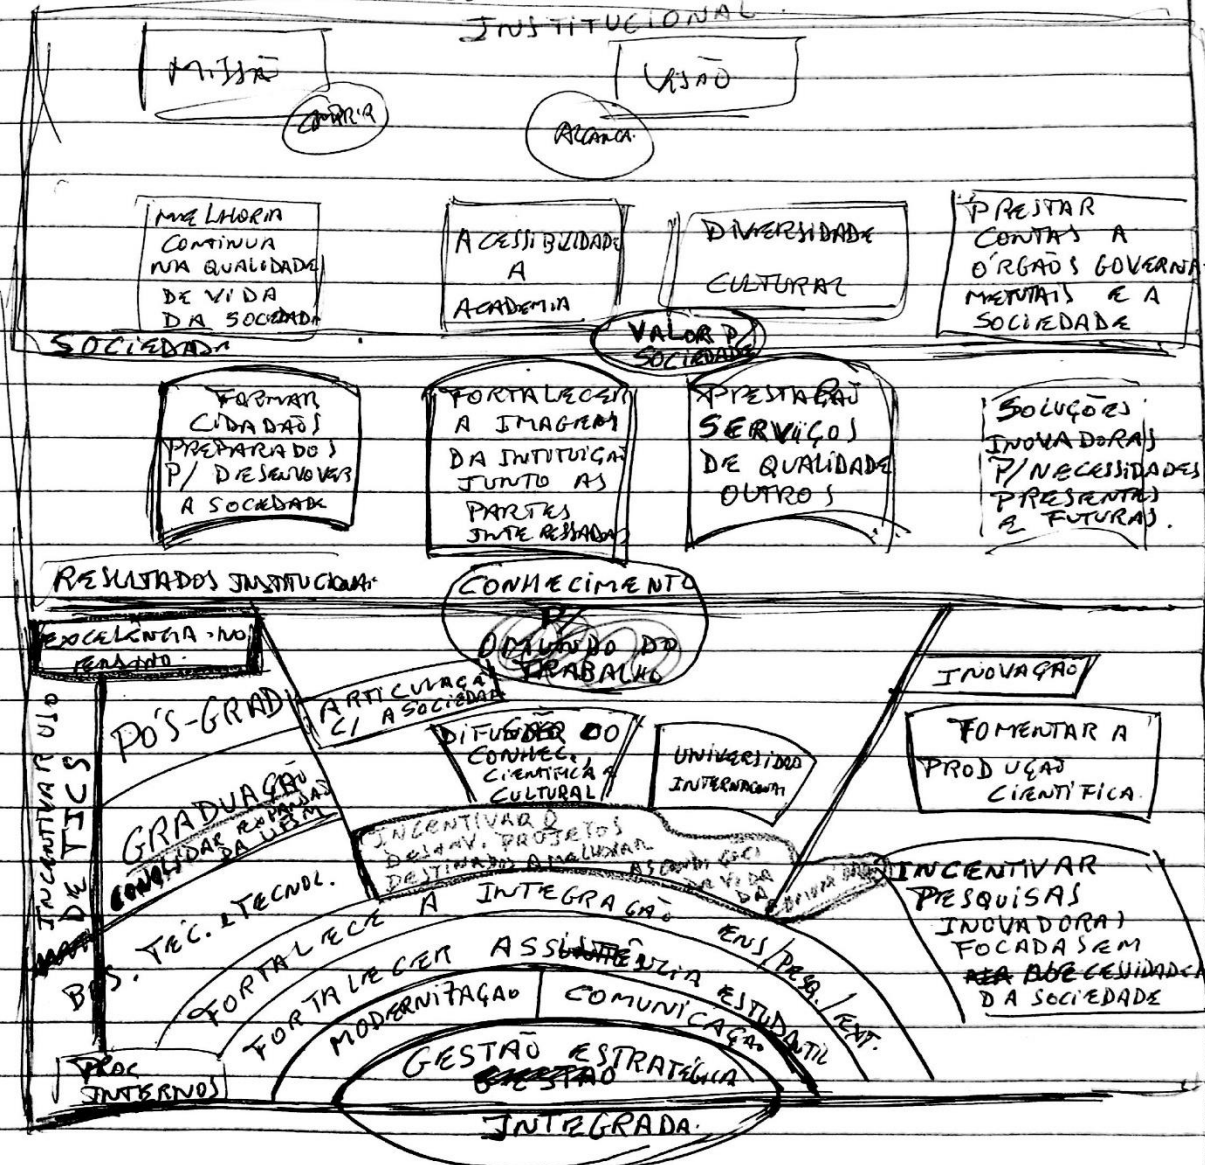 INSTITUCIONAL.
MISSÃO
VISÃO
CUMPRIR
ALCANCA.
MELHORIA
CONTINUA
NA QUALIDADE
DE VIDA
DA SOCIEDADE
ACESSIBILIDADE
A
ACADEMIA
DIVERSIDADE
CULTURAL
PRESTAR
CONTAS A
ÓRGAÕS GOVERNA
METNTAIS E A
SOCIEDADE
SOCIEDADE
VALOR P/
SOCIEDADE
FORMAR
CIDADAÕS
PREPARADOS
P/ DESENVOVER
A SOCIEDADE
FORTALECER
A IMAGEM
DA INTITUIÇAÕ
JUNTO AS
PARTES
INTERESSADAS
PRESTAÇAÕ
SERVIÇOS
DE QUALIDADE
OUTROS
SOLUÇÕES
INOVADORAS
P/ NECESSIDADES
PRESENTES
E FUTURAS.
RESULTADOS INSTITUCIONAI
CONHECIMENTO
P/
O MUNDO DO
TRABALHO
EXCELÊNCIA NO
ENSINO.
INCENTIVAR USO
DE TICS
PÓS-GRAD
GRADUAÇAÕ
CONSOLIDAR EXPANSAÕ
DA UFSM
BAS. TÉC. E TECNOL.
ARTICULAÇAÕ
C/ A SOCIEDADE
DIFUSÃO DO
CONHEC.
CIENTIFICA E
CULTURAL
UNIVERSIDAD
INTERNACIONAL
INCENTIVAR O
DESENV. PROJETOS
DESTINADOS A MELHORAR
AS CONDIÇOES
DE VIDA
DA
INOVAÇAÕ
FOMENTAR A
PRODUÇAÕ
CIENTÍFICA.
INCENTIVAR
PESQUISAS
INOVADORAS
FOCADAS EM
NECESSIDADES
DA SOCIEDADE
FORTALECE A INTEGRAÇAÕ ENS/PESQ./EXT.
FORTALECER ASSISTÊNCIA ESTUDANTIL
MODERNIZAÇAO
COMUNICAÇAO
PROC
INTERNOS
GESTAÕ ESTRATÉGICA
INTEGRADA.